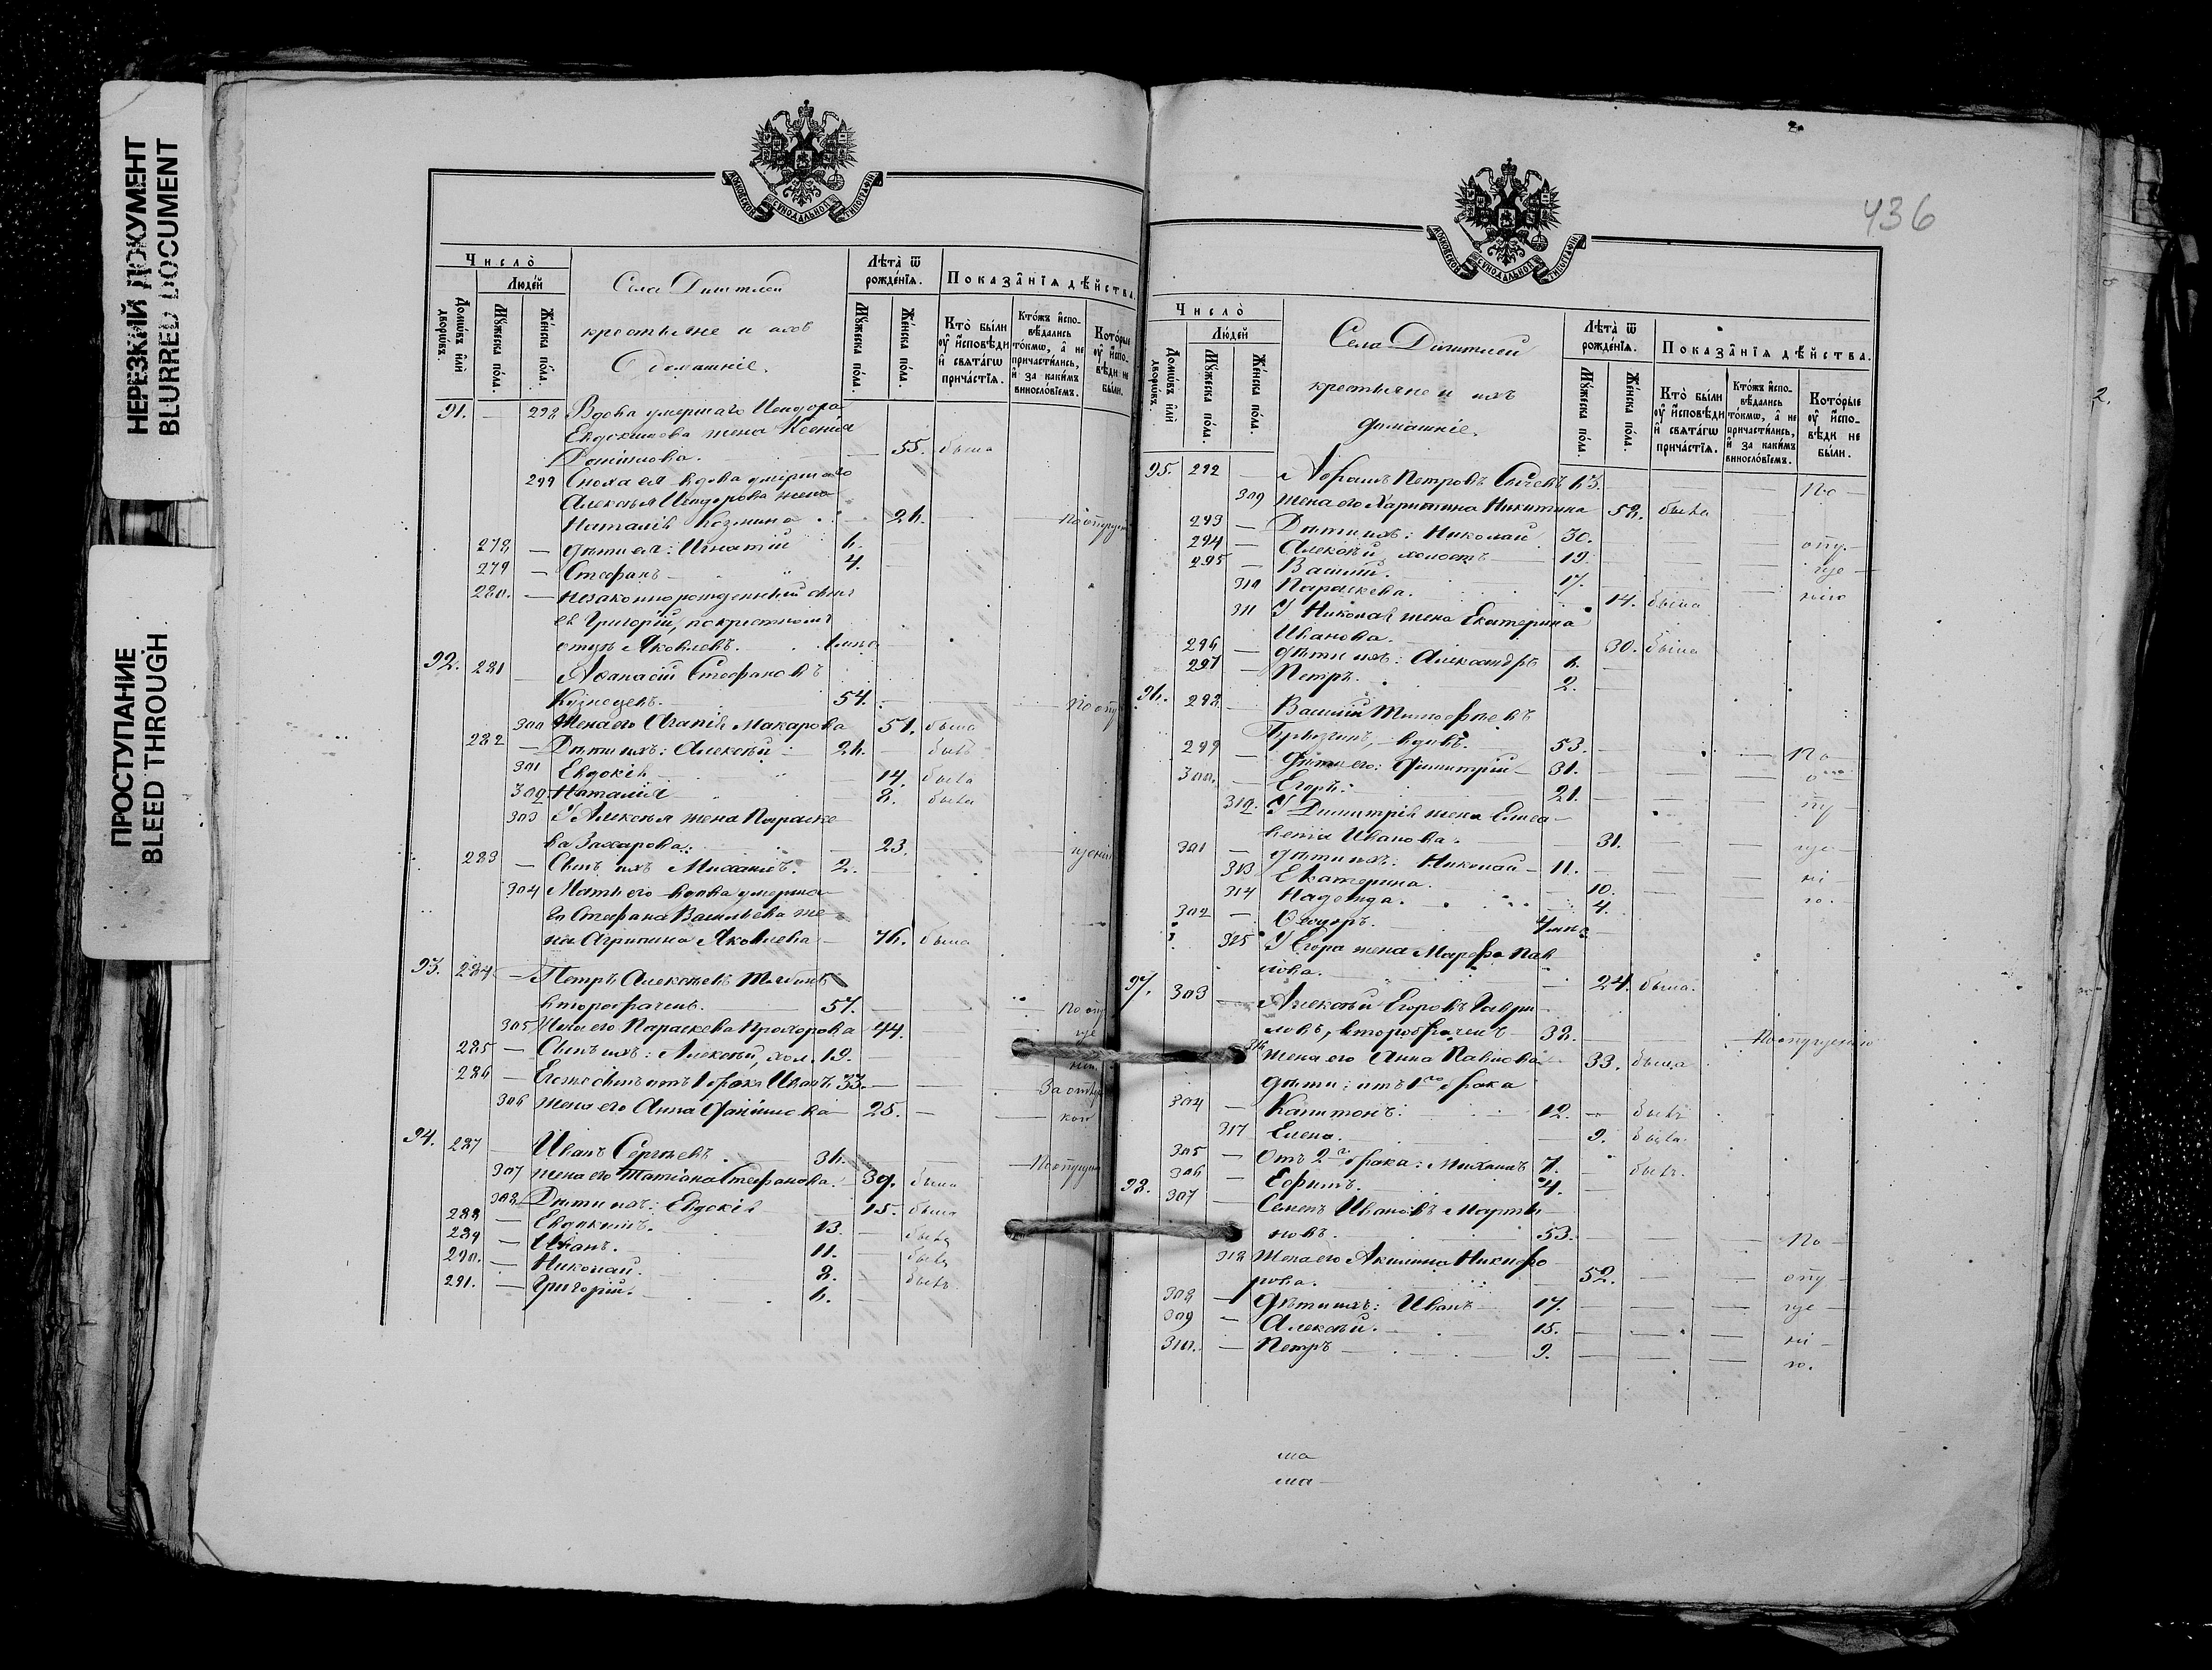 НЕРЕЗКИЙ ДОКУМЕНТ
BLURRED DOCUMENT
ПРОСТУПАНИЕ
BLEED THROUGH
МОСКОВСКОЙ СУНОДАЛЬНОЙ ТИПОГРАФІИ
Число̀
Людéй
Домѡ́въ и҆лѝ дворѡ́въ.
Мꙋ́жеска по́ла.
Же́нска по́ла.
Села
крестьяне и ихъ
домашніе.
Лѣта̀ ѿ рожде́нїѧ.
Мꙋ́жеска по́ла.
Же́нска по́ла.
Показа̑нїѧ дѣ́йства.
Кто̀ бы́ли ᲂу҆ и҆сповѣ́ди и҆ свѧта́гѡ прича́стїѧ.
Кто́жъ и҆спо-вѣ́дались то́кмѡ, а҆ не причасти́лись, и҆ за каки́мъ винослові́емъ.
Кото́рые ᲂу҆ и҆спо-вѣ́ди не бы́ли.
91. — 298 Вдова умершаго Исидора
Евдокимова жена Ксенія
Данилова. — 55. была
299 Сноха ея вдова умершаго
Алексѣя Исидорова жена
Наталія Козмина — 26. По опущен
278 — дѣти ея: Игнатій 6.
279 — Стефанъ 4.
280. — незаконнорожденный сынъ
ея Григорій, по крестному
отцу Яковлевъ.
92. 281 — Аѳанасій Стефановъ
Кузнецевъ. 54. По опу
300 Жена его Агапія Макарова 51. была
282 — Дѣти ихъ: Алексѣй 26. — былъ
301 Евдокія — 14. была
302 Наталія 8. была
303 У Алексѣя жена Параске
ва Захарова. — 23. щенію
283 — Сынъ ихъ Михаилъ. 2.
304 Мать его вдова умерша
го Стефана Васильева же
на Агрипина Яковлева — 76. была
93. 284 — Петръ Алексѣевъ
второбрачен. 57. По опу
305 Жена его Параскева Прохорова 44. ще
285 — Сынъ ихъ: Алексѣй, хол. 19. нію
286 — Его же сынъ отъ 1 брака Иванъ 33. — За отлуч
306 жена его Анна Данилова 25. — кой
94. 287 Иванъ Сергѣевъ. 36. —
307 жена его Татіана Стефанова. — 39. была По опущен
308 Дѣти ихъ: Евдокія 15. была
288 — Евдокимъ. 13. былъ
289 — Иванъ. 11. былъ
290. — Николай. 8. — былъ
291. — Григорій. 6. —
436
МОСКОВСКОЙ СУНОДАЛЬНОЙ ТИПОГРАФІИ
Число̀
Людéй
Домѡ́въ и҆лѝ дворѡ́въ.
Мꙋ́жеска по́ла.
Же́нска по́ла.
Села
крестьяне и ихъ
домашніе.
Лѣта̀ ѿ рожде́нїѧ.
Мꙋ́жеска по́ла.
Же́нска по́ла.
Показа̑нїѧ дѣ́йства.
Кто̀ бы́ли ᲂу҆ и҆сповѣ́ди и҆ свѧта́гѡ прича́стїѧ.
Кто́жъ и҆спо-вѣ́дались то́кмѡ, а҆ не причасти́лись, и҆ за каки́мъ винослові́емъ.
Кото́рые ᲂу҆ и҆спо-вѣ́ди не бы́ли.
95. 292 — Абрамъ Петровъ 63. По
309 жена его Харитина Никитина 58. была
293 — Дѣти ихъ: Николай 30. опу
294 — Алексѣй, холостъ 19. ще
295 — Василій. 17. нію
310 Параскева. 14. была
311 У Николая жена Екатерина
Иванова. — 30. была
296 — дѣти ихъ: Александръ 6.
297 — Петръ. 2. —
96. 298 — Василій Тимофѣевъ
вдовъ. 53. — По
299 — Дѣти его: Димитрій — 31. — о
300. — Егоръ. 21. — пу
312. У Димитрія жена Елиса
вета Иванова. 31. ще
301 — дѣти ихъ: Николай — 11. ні
313 Екатерина. 10. ю.
314 Надежда. 4.
302 — Ѳеодоръ.
315 У Егора жена Марфа Пав
лова. — 24. была.
97. 303 — Алексѣй Егоровъ Гаври
ловъ, второбраченъ 38. — По опущенію
316 жена его Анна Павлова 33. была
дѣти: отъ 1го брака
304 — Капитонъ. 12. — былъ
317 Елена. — 9. была.
305 — Отъ 2го брака: Михаилъ 7. былъ.
306 — Ефимъ. 4.
98. 307 — Семенъ Ивановъ Марты
новъ. 53. По
318 Жена его Акилина Никифо
рова. 52. — опу
308 — Дѣти ихъ: Иванъ 17. — ще
309 — Алексѣй. 15. — ні
310. — Петръ 9. — ю.
ма
ма